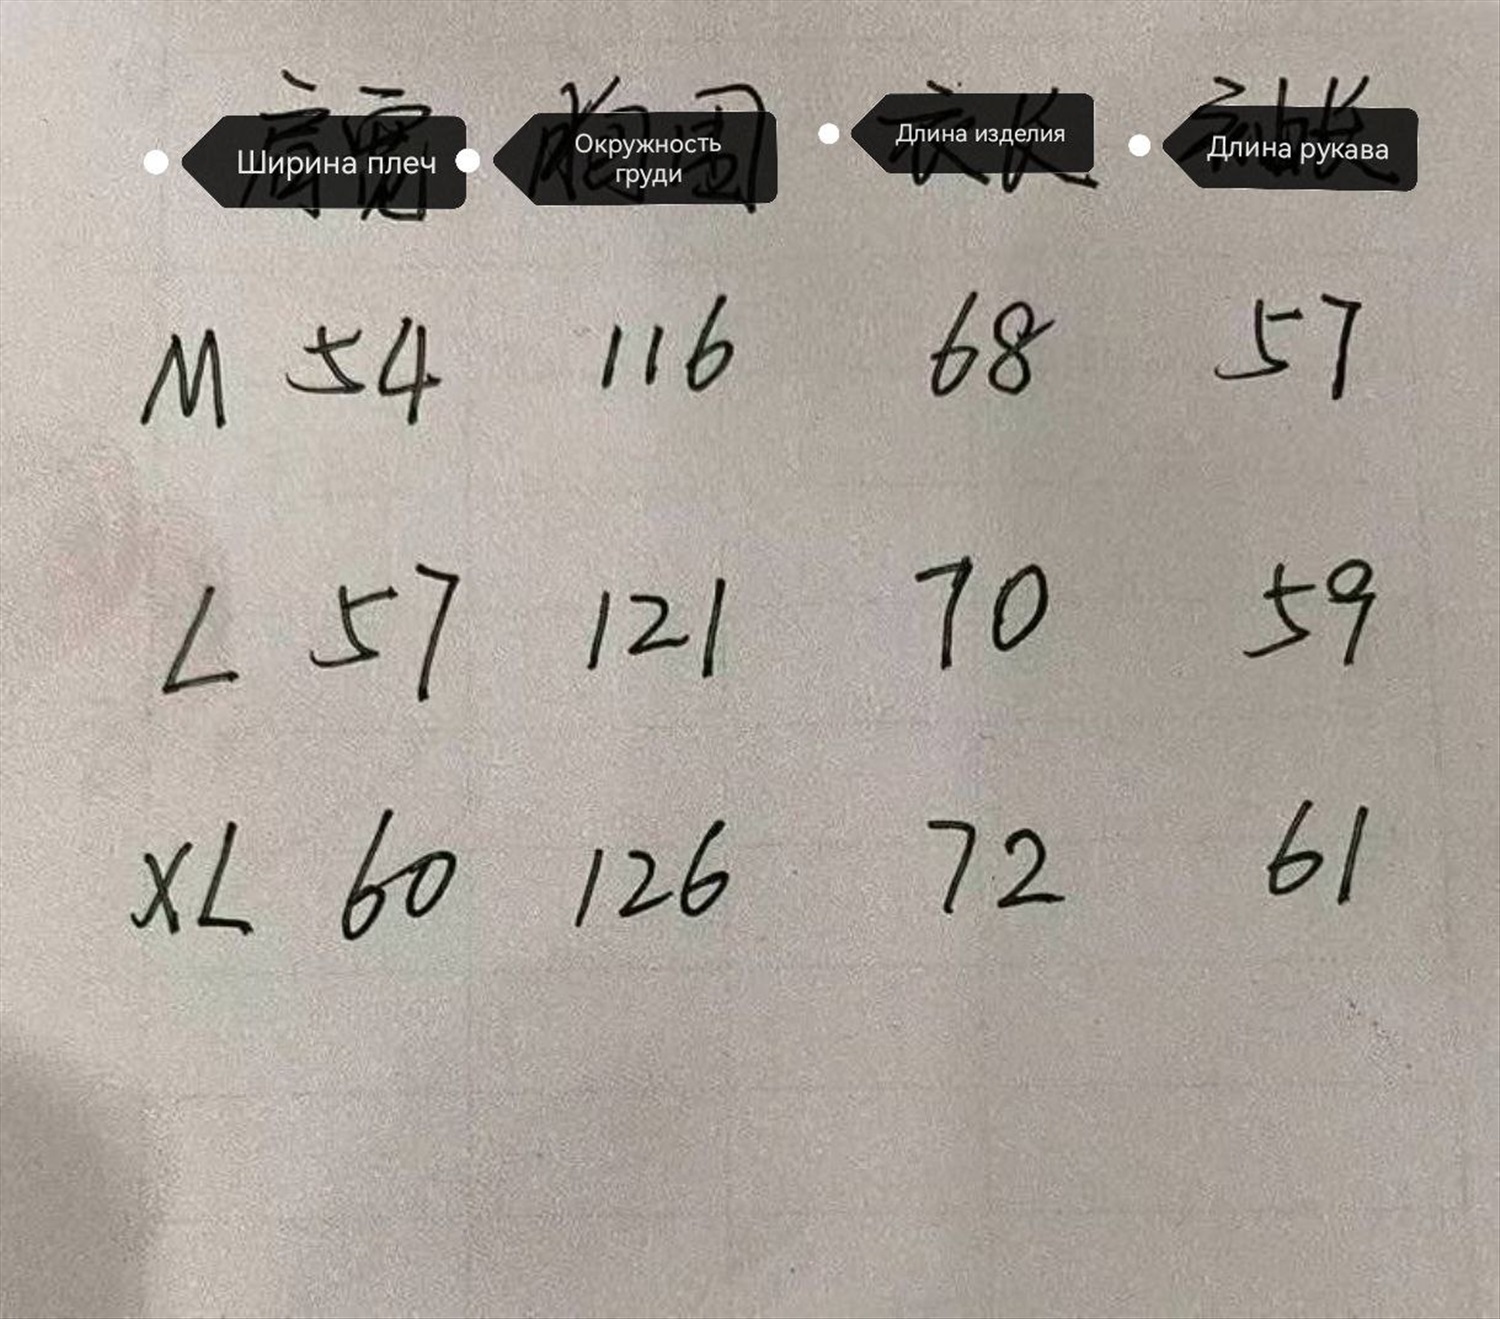 肩宽 胸围 衣长 袖长
Ширина плеч Окружность груди Длина изделия Длина рукава
M 54 116 68 57
L 57 121 70 59
XL 60 126 72 61